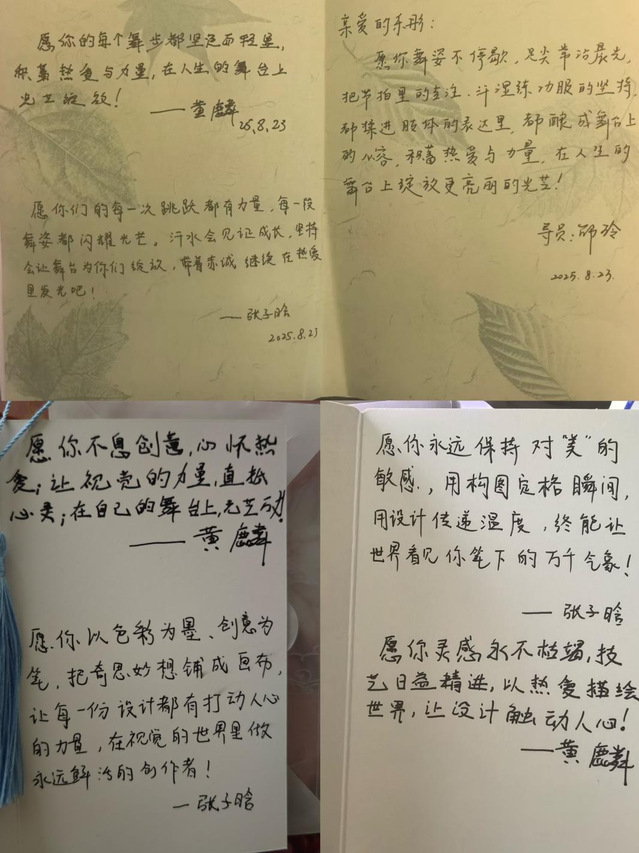 愿你的每个舞步都坚定而轻盈,
积蓄热爱与力量,在人生的舞台上
光芒绽放!
——黄麟
25.8.23
愿你们的每一次跳跃都有力量,每一段
舞姿都闪耀光芒。汗水会见证成长,坚持
会让舞台为你们绽放,带着赤诚继续在热爱
里发光吧!
——张子晗
2025.8.23
亲爱的禾彤:
愿你舞姿不停歇,足尖常沾晨光,
把节拍里的专注、汗湿练功服的坚持,
都揉进肢体的表达里,都酿成舞台上
的从容,积蓄热爱与力量,在人生的
舞台上绽放更亮丽的光芒!
导员:邱玲
2025.8.23.
愿你不息创意,心怀热
爱;让视觉的力量,直抵
心灵;在自己的舞台上,光芒万丈!
——黄麟
愿你以色彩为墨、创意为
笔,把奇思妙想铺成画布,
让每一份设计都有打动人心
的力量,在视觉的世界里做
永远鲜活的创作者!
—张子晗
愿你永远保持对“美”的
敏感,用构图定格瞬间,
用设计传递温度,终能让
世界看见你笔下的万千气象!
——张子晗
愿你灵感永不枯竭,技
艺日益精进,以热爱描绘
世界,让设计触动人心!
——黄麟